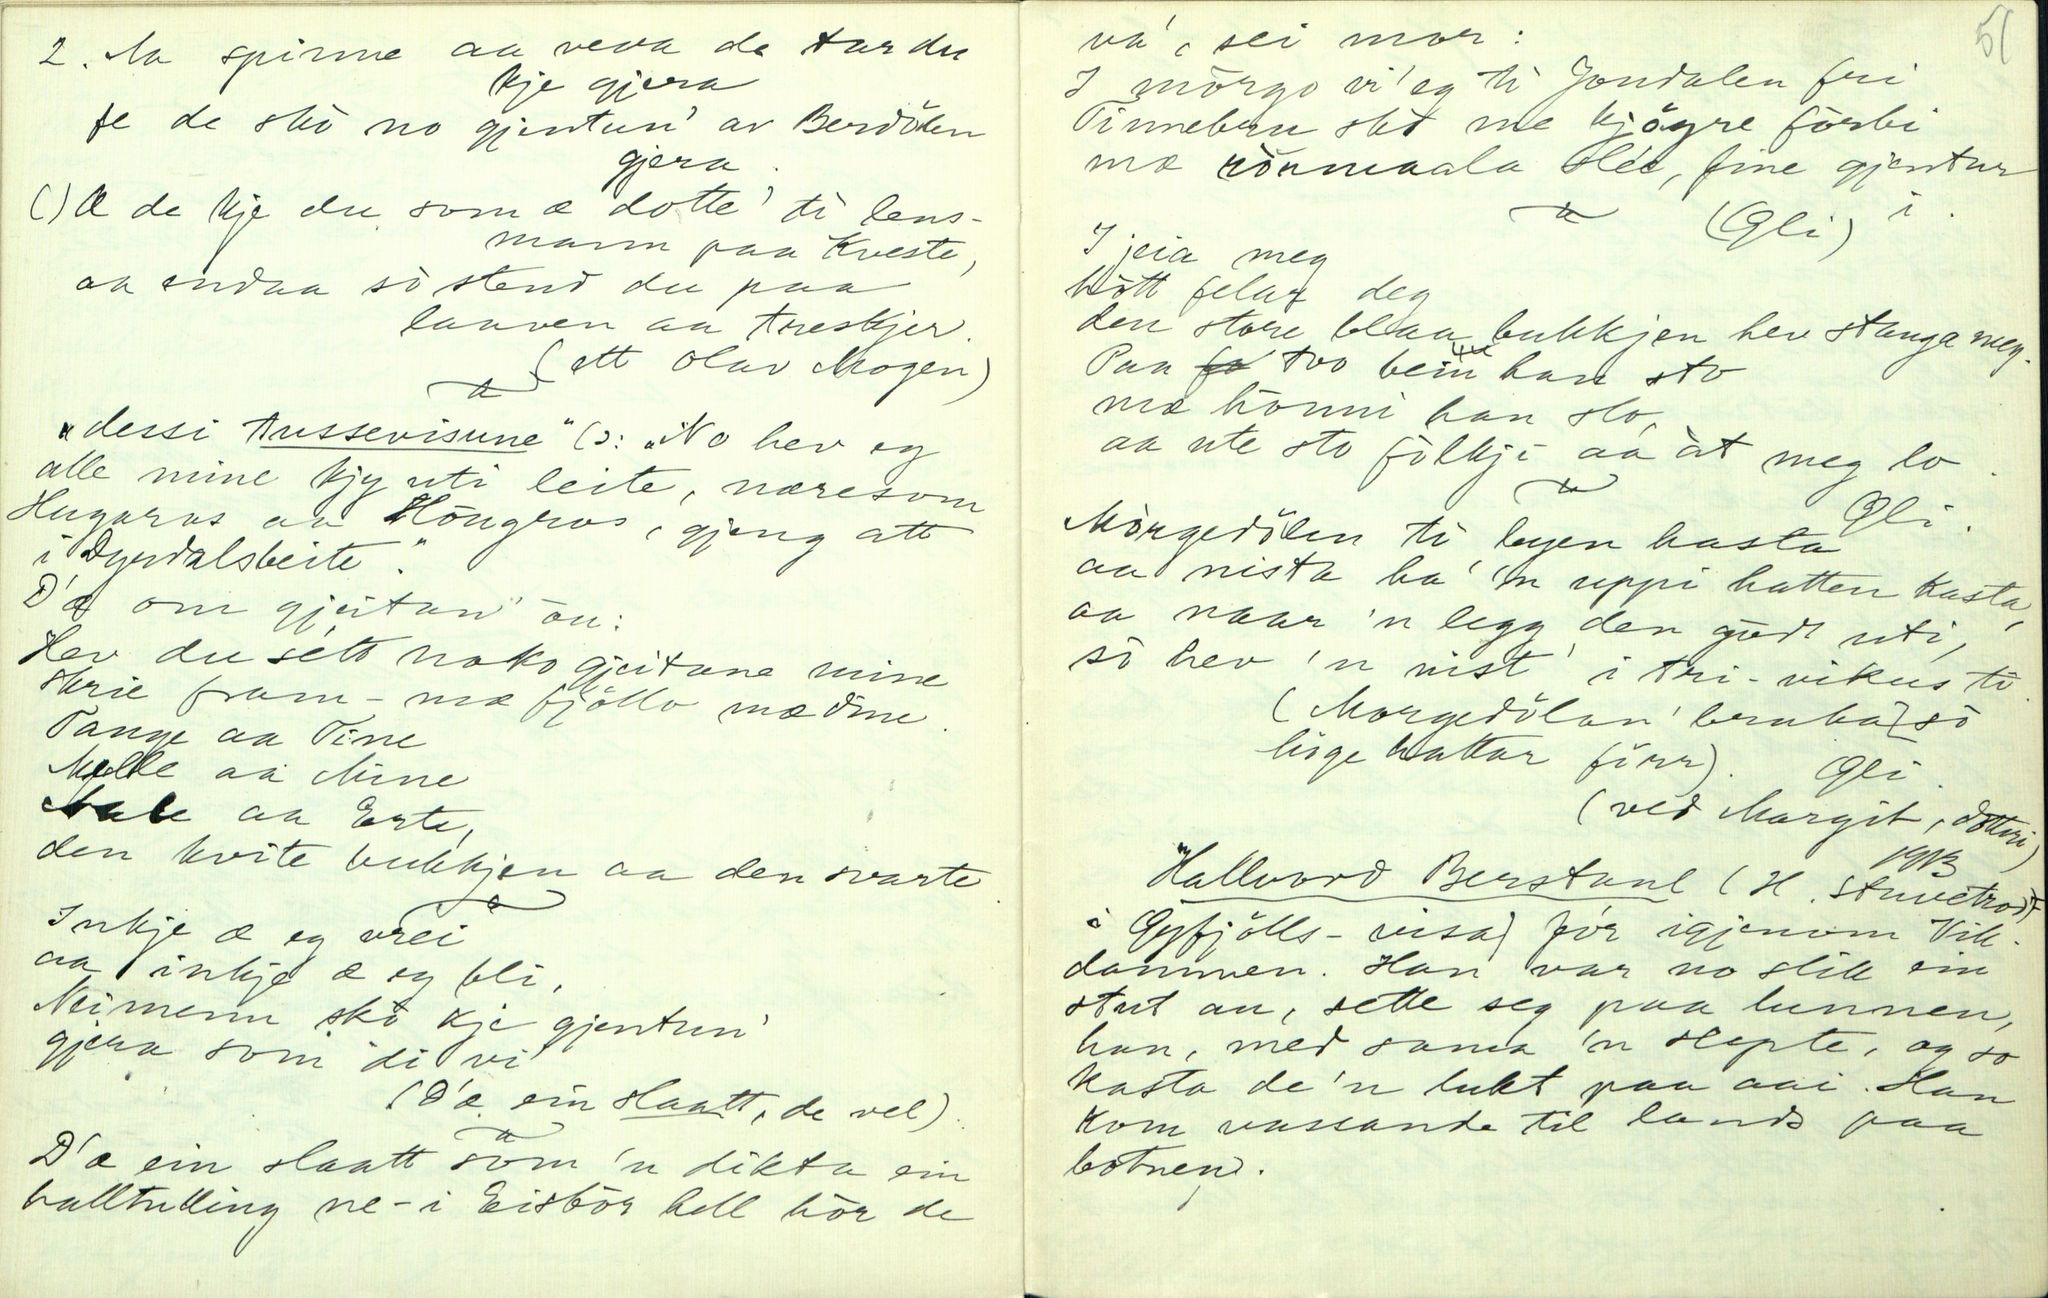 2. Aa spinne aa veva de tar du
kje gjera
fe de skò no gjentun' av Berdölen
gjera.
() Æ de kje du som æ dotte' ti lens-
mann paa Kveste,
aa endaa sò stend du paa
laaven aa treskjer.
(ett Olav Mogen)
"dessi Tussevisune" (ɔ: "No hev eg
alle mine kjy uti leite, næresom
Hugaros aa Hòngros, gjeng att
i Dyrdalsbeite."
D'æ om gjeitan' òu:
Hev du sett noko gjeitane mine
skrie fram-mæ fjöllo mæ dine.
Tange aa Tine
Melle aa Mine
aa Erte,
den kvite bukkjen aa den svarte.
Inkje æ eg vrei
aa inkje æ eg bli,
Neimenn skò kje gjentun'
gjera som di vi'
(D'æ ein slaatt, de vel).
D'æ ein slaatt som 'n dikta ein
halltulling ne-i Eisbòr hell hòr de
51
va', sei mor:
I mòrgo vi' eg ti Jondalen fri
Tinnebru skò me kjögre fòrbi
mæ ròumaala slee, fine gjentur
i.
(Gli)
I jeia meg
hòtt felar deg
den store blaa bukkjen hev stanga meg.
Paa two bein han sto
mæ hònni han slo,
aa ute sto fòlkji aa àt meg lo.
Gli.
Mòrgedölen ti byen hasta
aa nista ha' 'n uppi hatten kasta,
aa naar 'n legg den godt uti,
sò hev 'n nist' i tri-vikus ti.
(Morgedölan' bruka sò
höge hattar fòrr). Gli.
(ved Margit, dotteri)
1913
Hallvord Berstaul (H. Stuvetrodt
i Gyfjölls-visa) fór igjenom Vik-
dammen. Han var no slik ein
stut au, sette seg paa lunnen,
han, med sama 'n slepte, og so
kasta de 'n lukt paa aai. Han
kom vassande til lands paa
botnen.